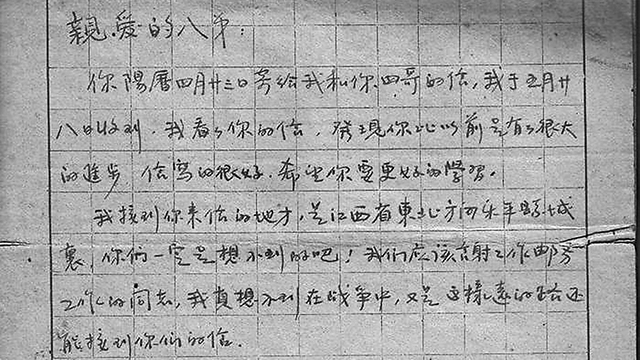 親爱的八弟：
你陽曆四月廿三日寄给我和你四哥的信，我于五月廿
八日收到．我看了你的信，發現你比以前是有了很大
的進步 信寫的很好．希望你要更好的學習。
我接到你来信的地方，是江西省東北方向乐平縣城
裏，你們一定是想不到的吧！我们应该感謝工作郵务
工作的同志，我真想不到在战争中，又是这樣遠的路还
能接到你们的信．